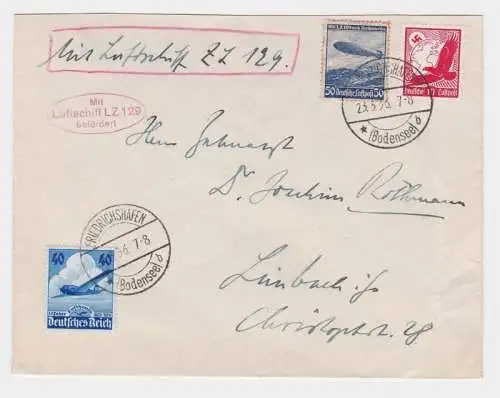 Mit Luftschiff LZ 129.
Mit
Luftschiff LZ 129
befördert
50 Deutsche Luftpost 50
Deutsche Luftpost
FRIEDRICHSHAFEN
23.3.36. 7-8
(Bodensee) b
Herrn Zahnarzt
Dr. Joachim Rothmann
Limbach i/Sa.
Christophstr. 28
FRIEDRICHSHAFEN
36. 7-8
(Bodensee) b
40 40
Deutsches Reich